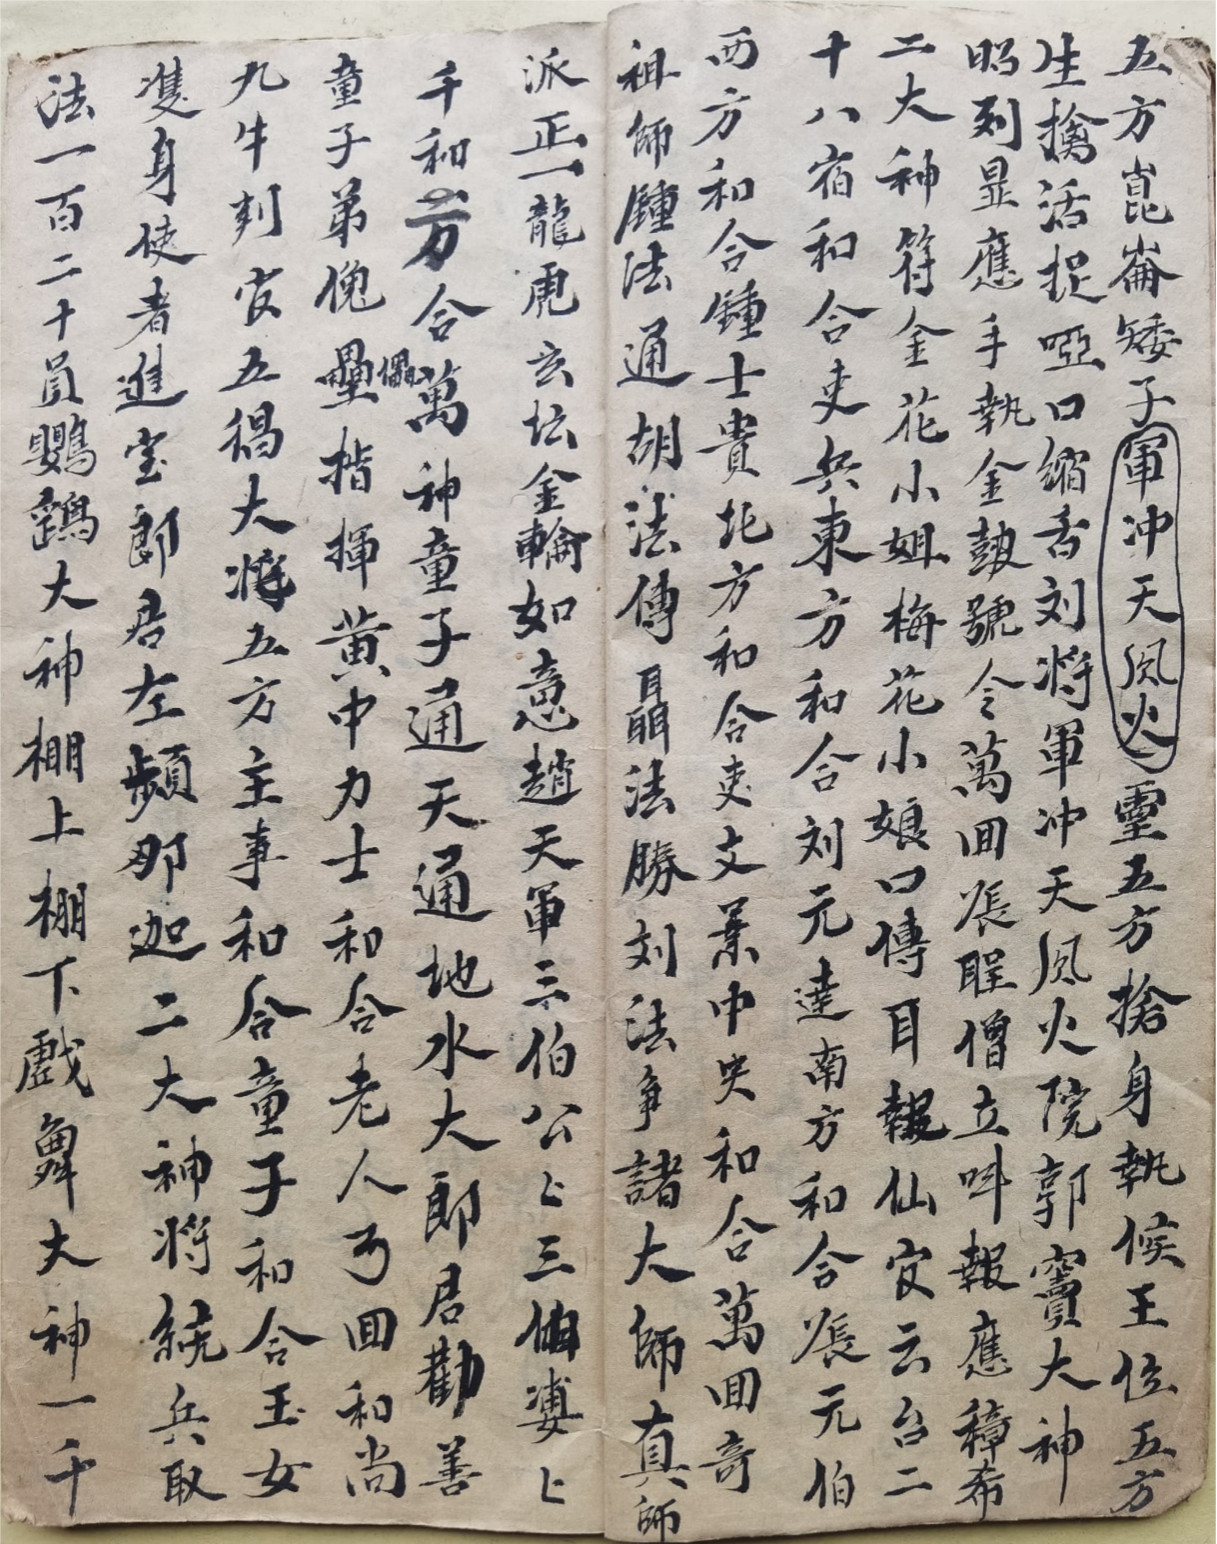 五方崑崙矮子軍冲天風火靈五方搶身執候王位五方
生擒活捉啞口縮舌刘将軍冲天風火院郭竇大神
昭烈显應手執金鼓號令萬回張聖僧立呌報應稱希
二大神符金花小姐梅花小娘口傳耳報仙官云台二
十八宿和合吏兵東方和合刘元達南方和合張元伯
西方和合鍾士貴北方和合史文業中央和合萬回哥
祖師鍾法通胡法傳聶法勝刘法爭諸大師真師
派正一龍虎玄坛金輪如意趙天軍三伯公公三伯婆婆
千和万合萬神童子通天通地水大郎君勸善
童子弟傀儡壘揩揮黄巾力士和合老人弓回和尚
九牛判官五猖大将五方主事和合童子和合玉女
進身使者進宝郎君左頻那迦二大神将統兵取
法一百二十員鸚鵡大神棚上棚下戲舞大神一千